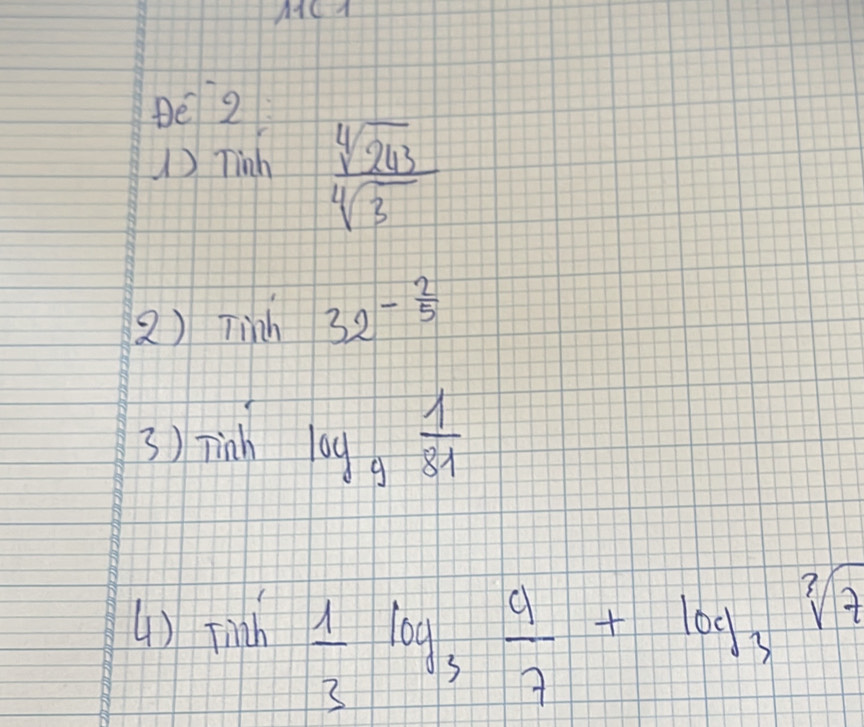 11C1
Đề 2:
1) Tính \frac{\sqrt[4]{243}}{\sqrt[4]{3}}
2) Tính 32^{-\frac{2}{5}}
3) Tính log_9 \frac{1}{81}
4) Tính \frac{1}{3} log_3 \frac{9}{7} + log_3 \sqrt[3]{7}